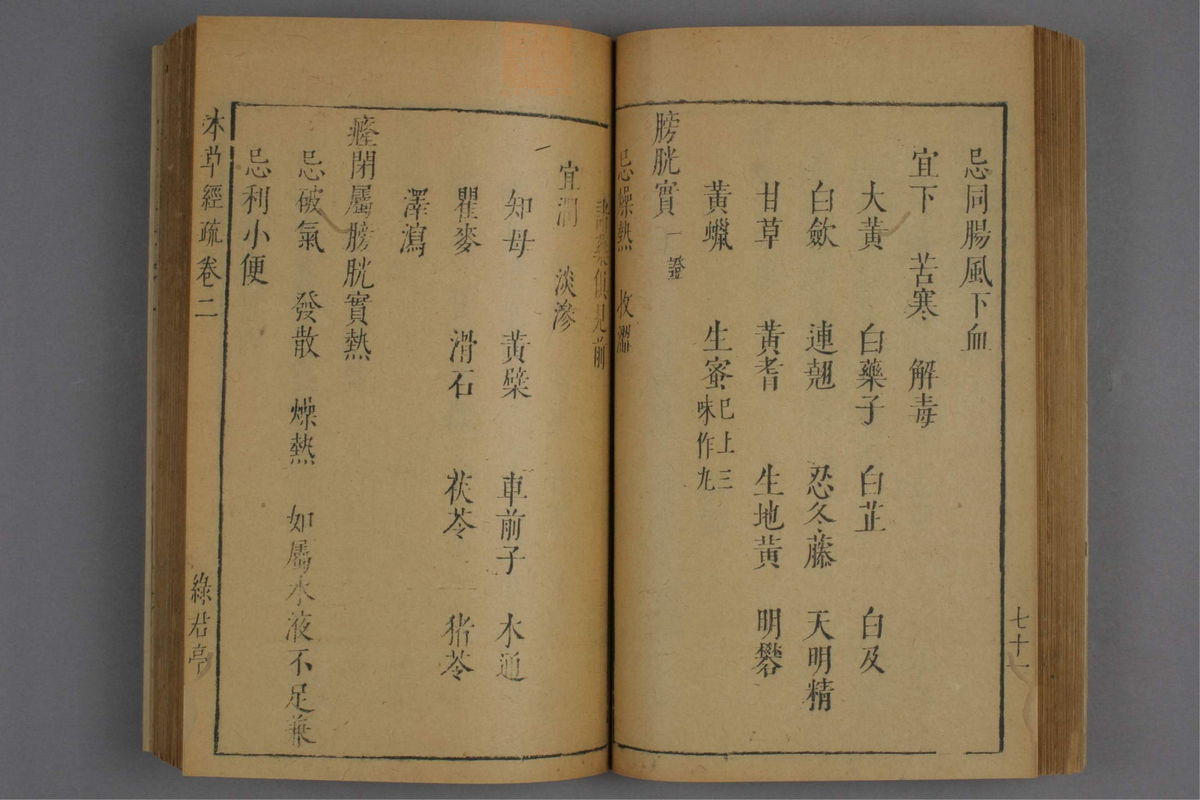 忌同腸風下血
宜下　苦寒　解毒
大黃　白藥子　白芷　白及
白歛　連翹　忍冬藤　天明精
甘草　黃耆　生地黃　明礬
黃蠟　生蜜　已上三味作丸
膀胱實一證
忌燥熱　收澀
諸藥俱見前
宜潤　淡滲
知母　黃蘗　車前子　木通
瞿麥　滑石　茯苓　猪苓
澤瀉
癃閉屬膀胱實熱
忌破氣　發散　燥熱　如屬水液不足兼
忌利小便
本草經疏卷二　綠君亭
七十一